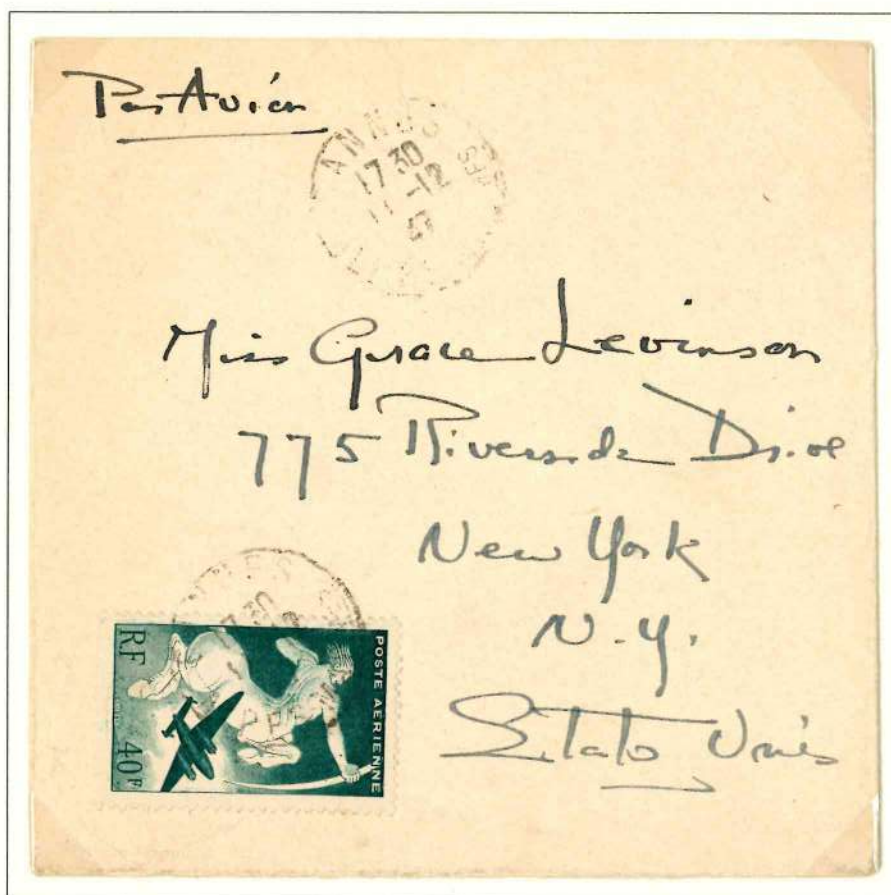 Par Avión
ANNES
17 30
11 -12
Miss Grace Levinson
775 Riverside Drive
New York
N.Y.
Etats Unis
17 30
POSTE AERIENNE
RF
40F